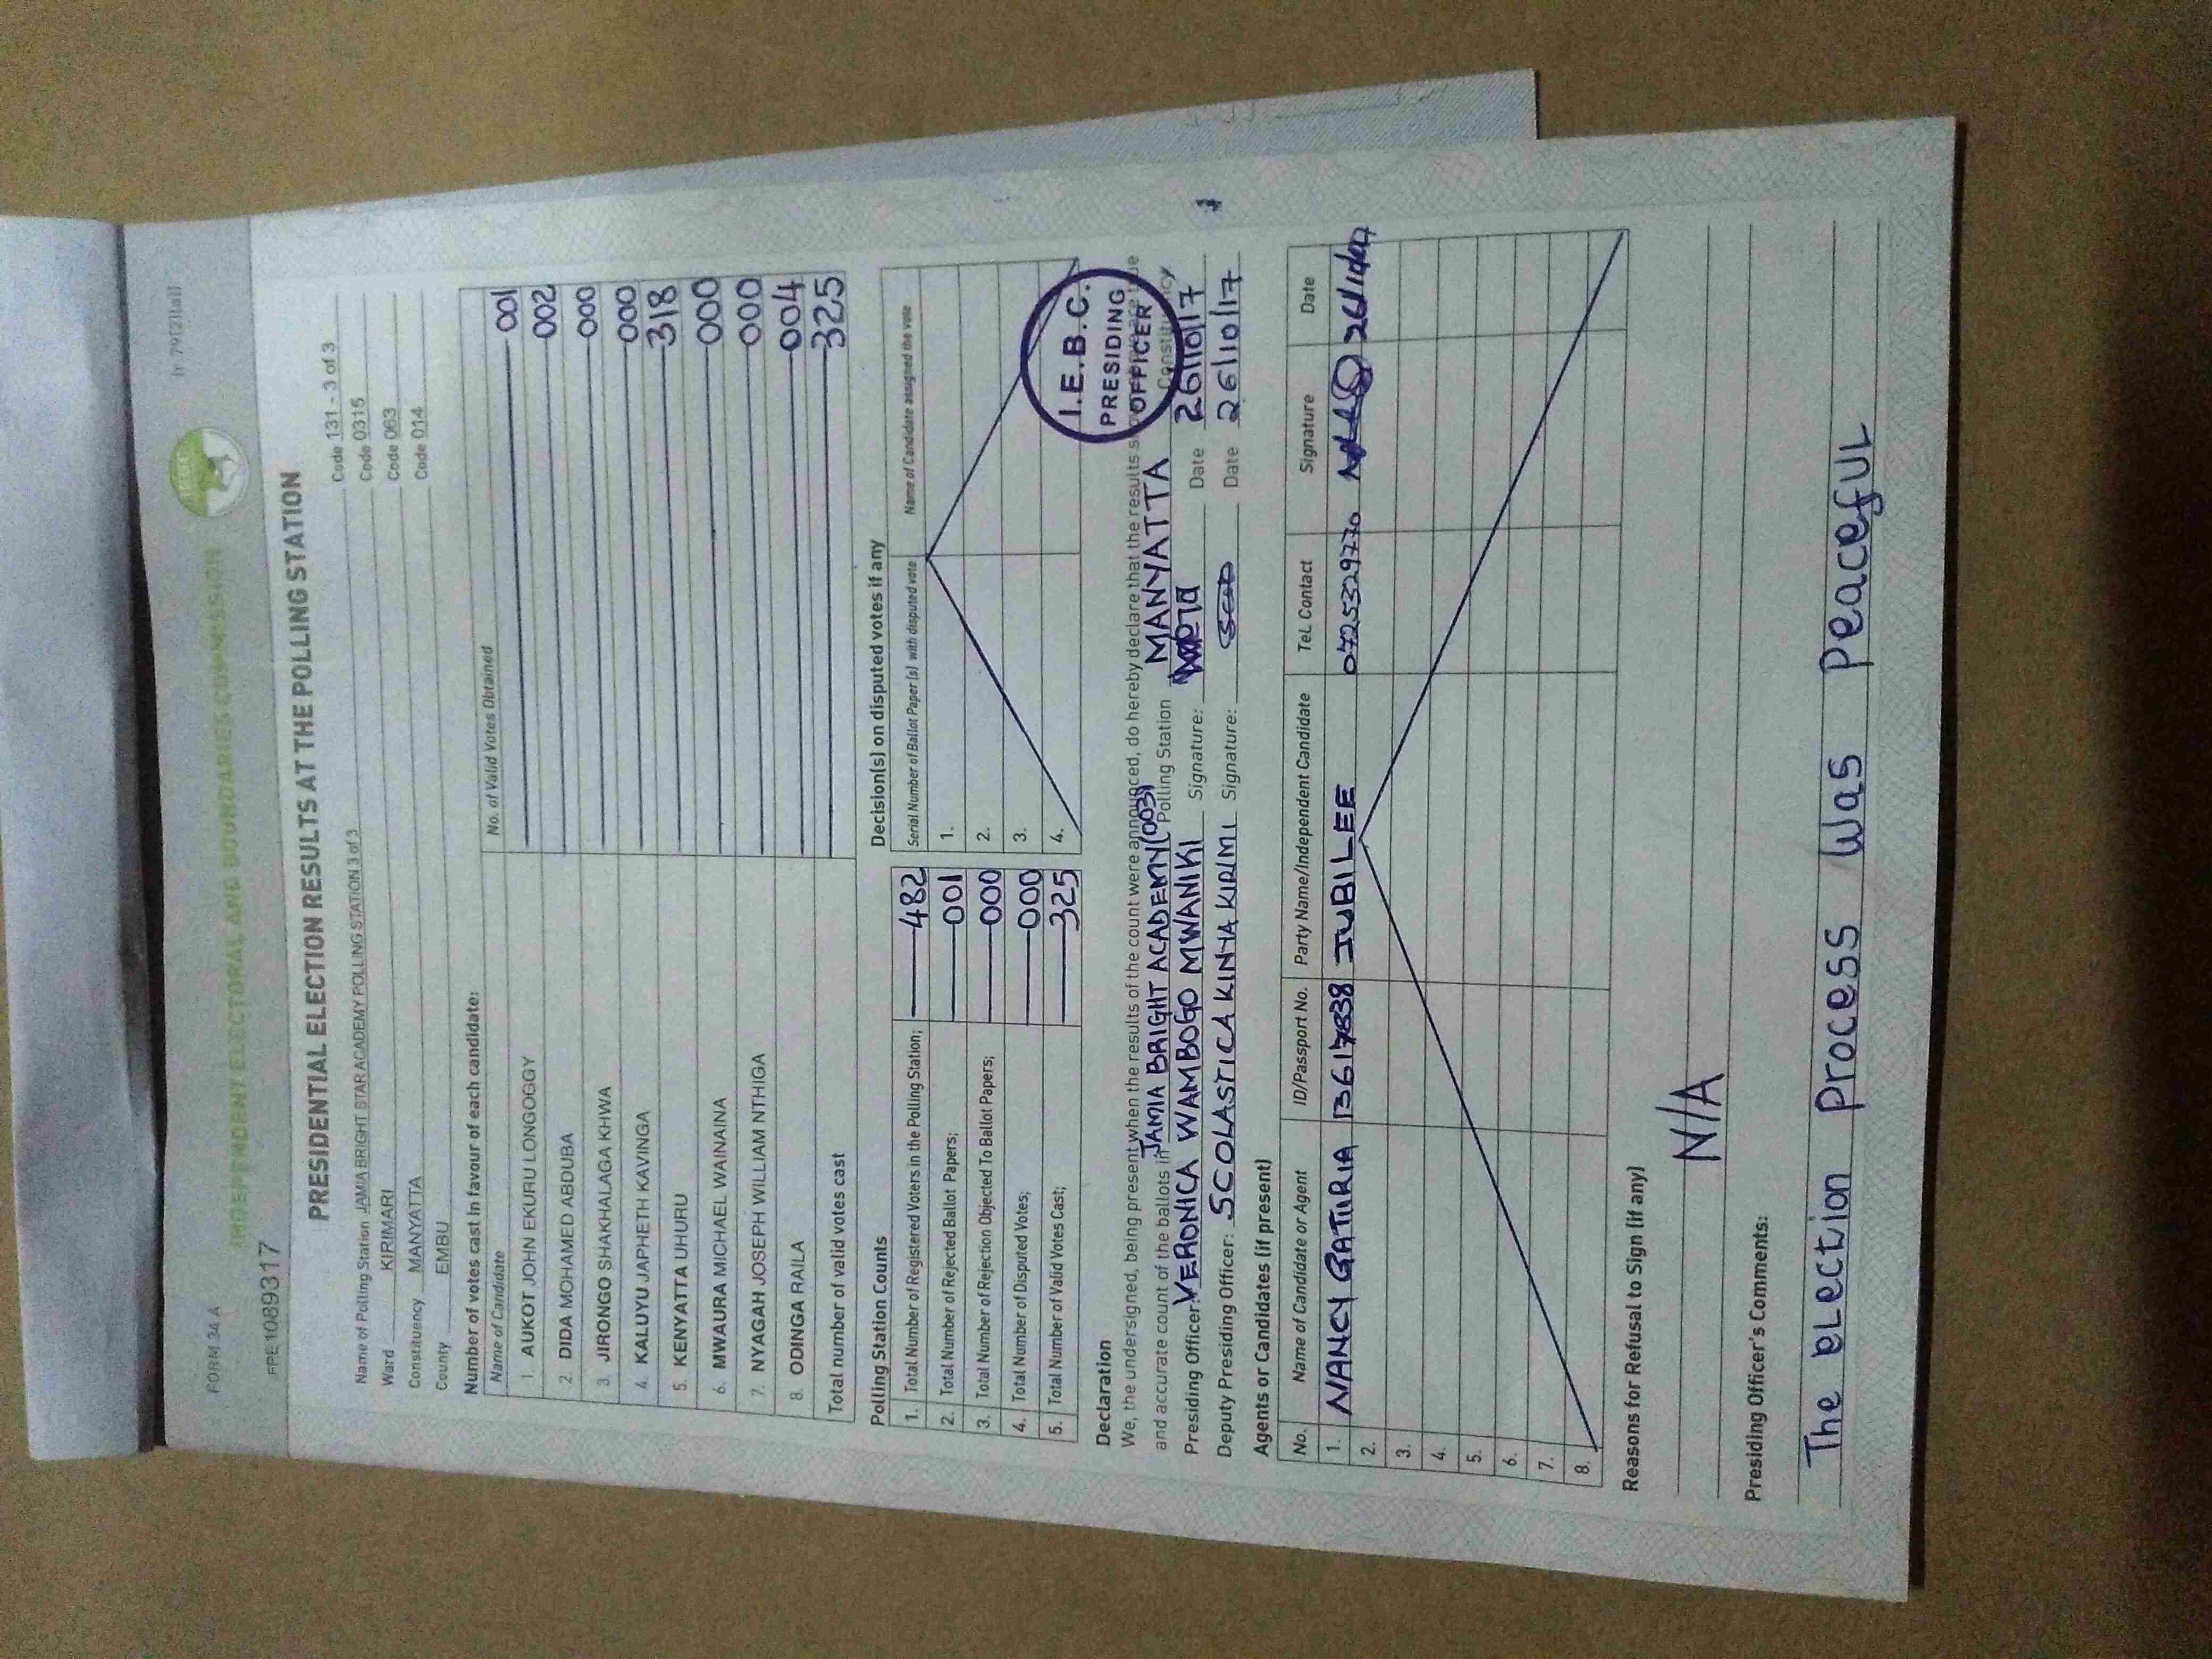 FORM 34 A
r 79(2)(a)
INDEPENDENT ELECTORAL AND BOUNDARIES COMMISSION
FPE1089317
PRESIDENTIAL ELECTION RESULTS AT THE POLLING STATION
Name of Polling Station JAMIA BRIGHT STAR ACADEMY POLLING STATION 3 of 3 Code 131 - 3 of 3
Ward KIRIMARI Code 0315
Constituency MANYATTA Code 063
County EMBU Code 014
Number of votes cast in favour of each candidate:
Name of Candidate No. of Valid Votes Obtained
1. AUKOT JOHN EKURU LONGOGGY 001
2 DIDA MOHAMED ABDUBA 002
3. JIRONGO SHAKHALAGA KHWA 000
4. KALUYU JAPHETH KAVINGA 000
5. KENYATTA UHURU 318
6. MWAURA MICHAEL WAINAINA 000
7. NYAGAH JOSEPH WILLIAM NTHIGA 000
8. ODINGA RAILA 004
Total number of valid votes cast 325
Polling Station Counts
1. Total Number of Registered Voters in the Polling Station; 482
2. Total Number of Rejected Ballot Papers; 001
3. Total Number of Rejection Objected To Ballot Papers; 000
4. Total Number of Disputed Votes; 000
5. Total Number of Valid Votes Cast; 325
Decision(s) on disputed votes if any
Serial Number of Ballot Paper (s) with disputed vote Name of Candidate assigned the vote
1.
2.
3.
4.
I.E.B.C.
PRESIDING
OFFICER
Declaration
We, the undersigned, being present when the results of the count were announced, do hereby declare that the results
and accurate count of the ballots in JAMIA BRIGHT ACADEMY(003) Polling Station MANYATTA Constituency
Presiding Officer: VERONICA WAMBOGO MWANIKI Signature: Date 26/10/17
Deputy Presiding Officer: SCOLASTICA KINYA KIRIMI Signature: Date 26/10/17
Agents or Candidates (if present)
No. Name of Candidate or Agent ID/Passport No. Party Name/Independent Candidate Tel. Contact Signature Date
1. NANCY GATURIA 13617838 JUBILEE 0725329770
2.
3.
4.
5.
6.
7.
8.
Reasons for Refusal to Sign (if any)
N/A
Presiding Officer's Comments:
The election process was peaceful